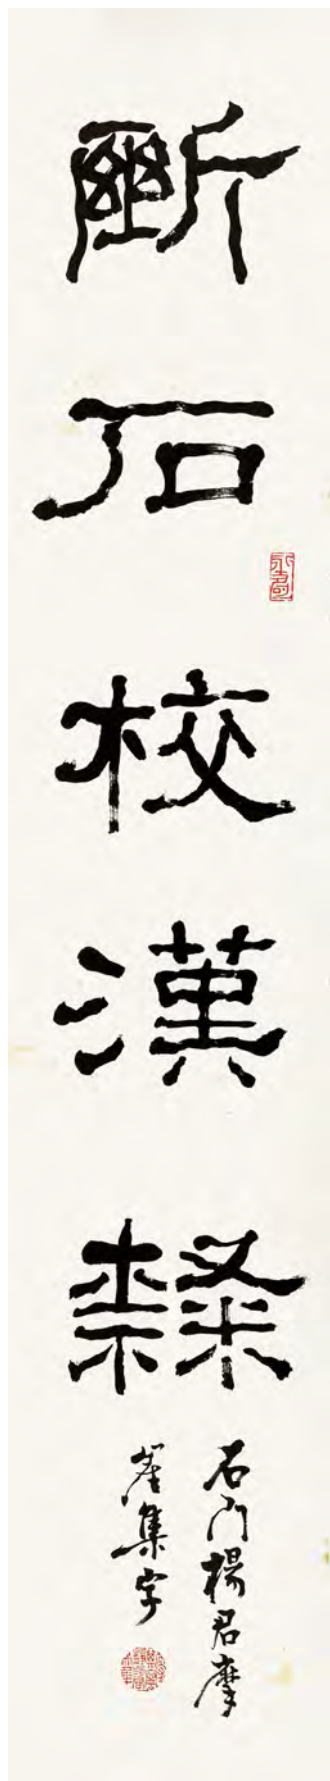 斷石校漢隸
石門楊君摩
崖集字